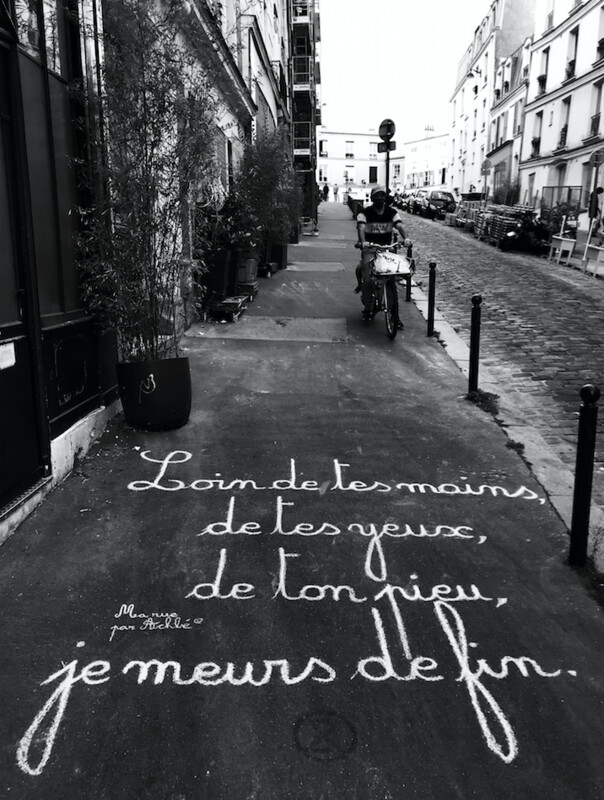 "Loin de tes mains,
de tes yeux,
de ton pieu,
Ma rue
par Achbé
je meurs de fin.